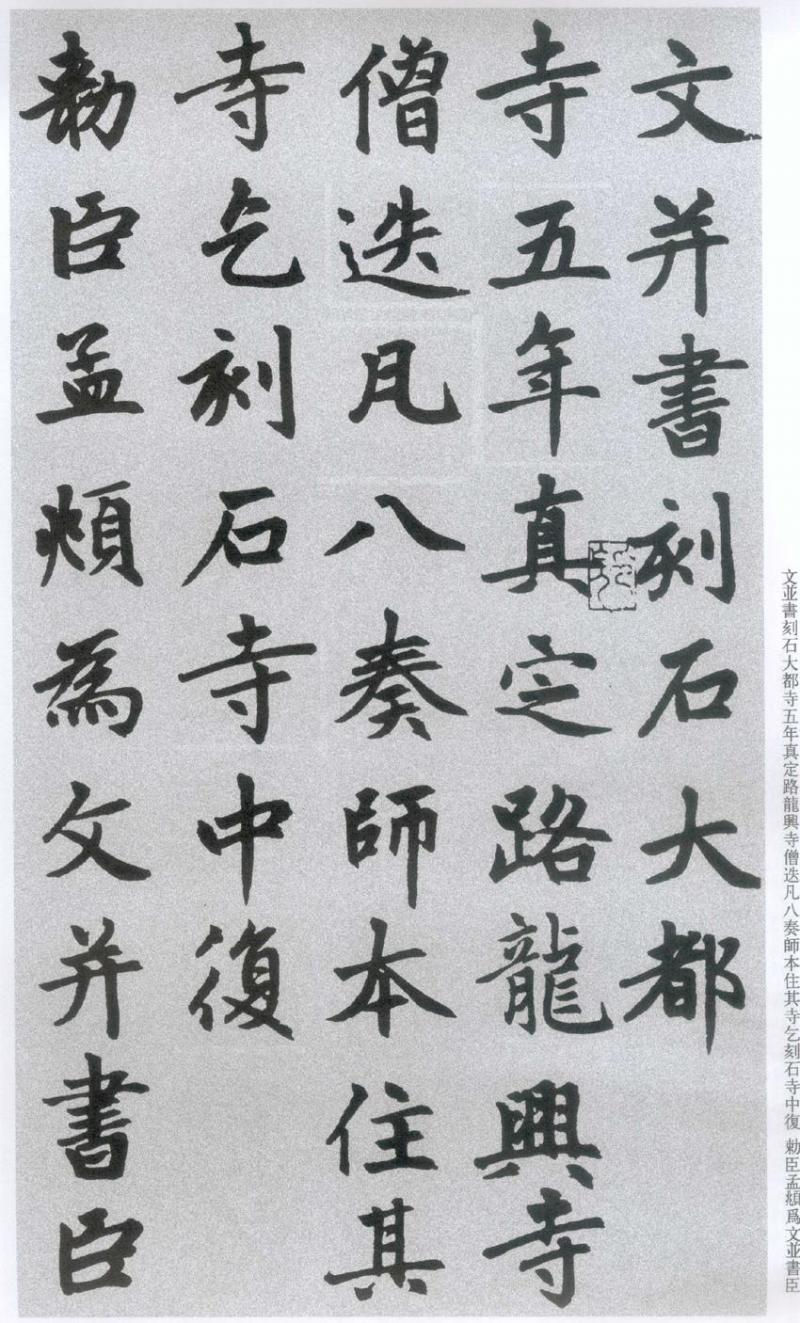 文并書刻石大都
寺五年真定路龍興寺
僧迭凡八奏師本住其
寺乞刻石寺中復
勅臣孟頫為文并書臣
文並書刻石大都寺五年真定路龍興寺僧迭凡八奏師本住其寺乞刻石寺中復 勅臣孟頫爲文並書臣